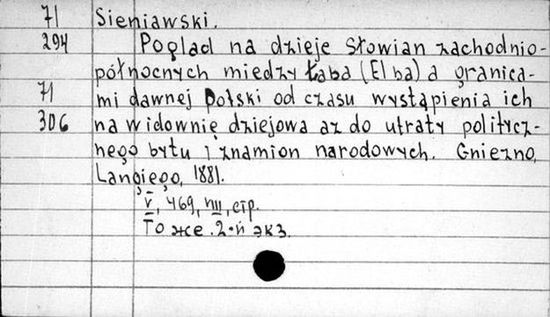 71 Sieniawski.
294 Pogląd na dzieje Słowian zachodnio-
północnych między Łabą (Elba) a granica-
71 mi dawnej Polski od czasu wystąpienia ich
306 na widownię dziejową aż do utraty politycz-
nego bytu i znamion narodowych. Gniezno,
Langiego, 1881.
V, 469, VIII, стр.
То же. 2-й экз.